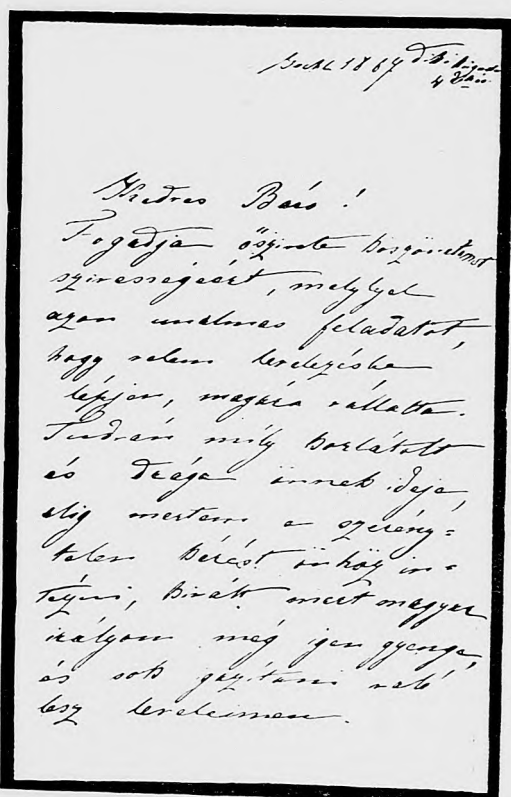 Ischl 1867 diki Augusztus
4 én
Kedves Báró!
Fogadja őszinte köszönetemet
szivességeért, melylyel
azon unalmas feladatot,
hogy velem levelezésbe
lépjen, magára vállatta.
Tudván mily korlátolt
és drága önnek ideje,
alig mertem a szerény=
telen kérést önhöz in=
tézni, kivált mert magyar
irályom még igen gyenge,
és sok jazitani való
lesz leveleimen.